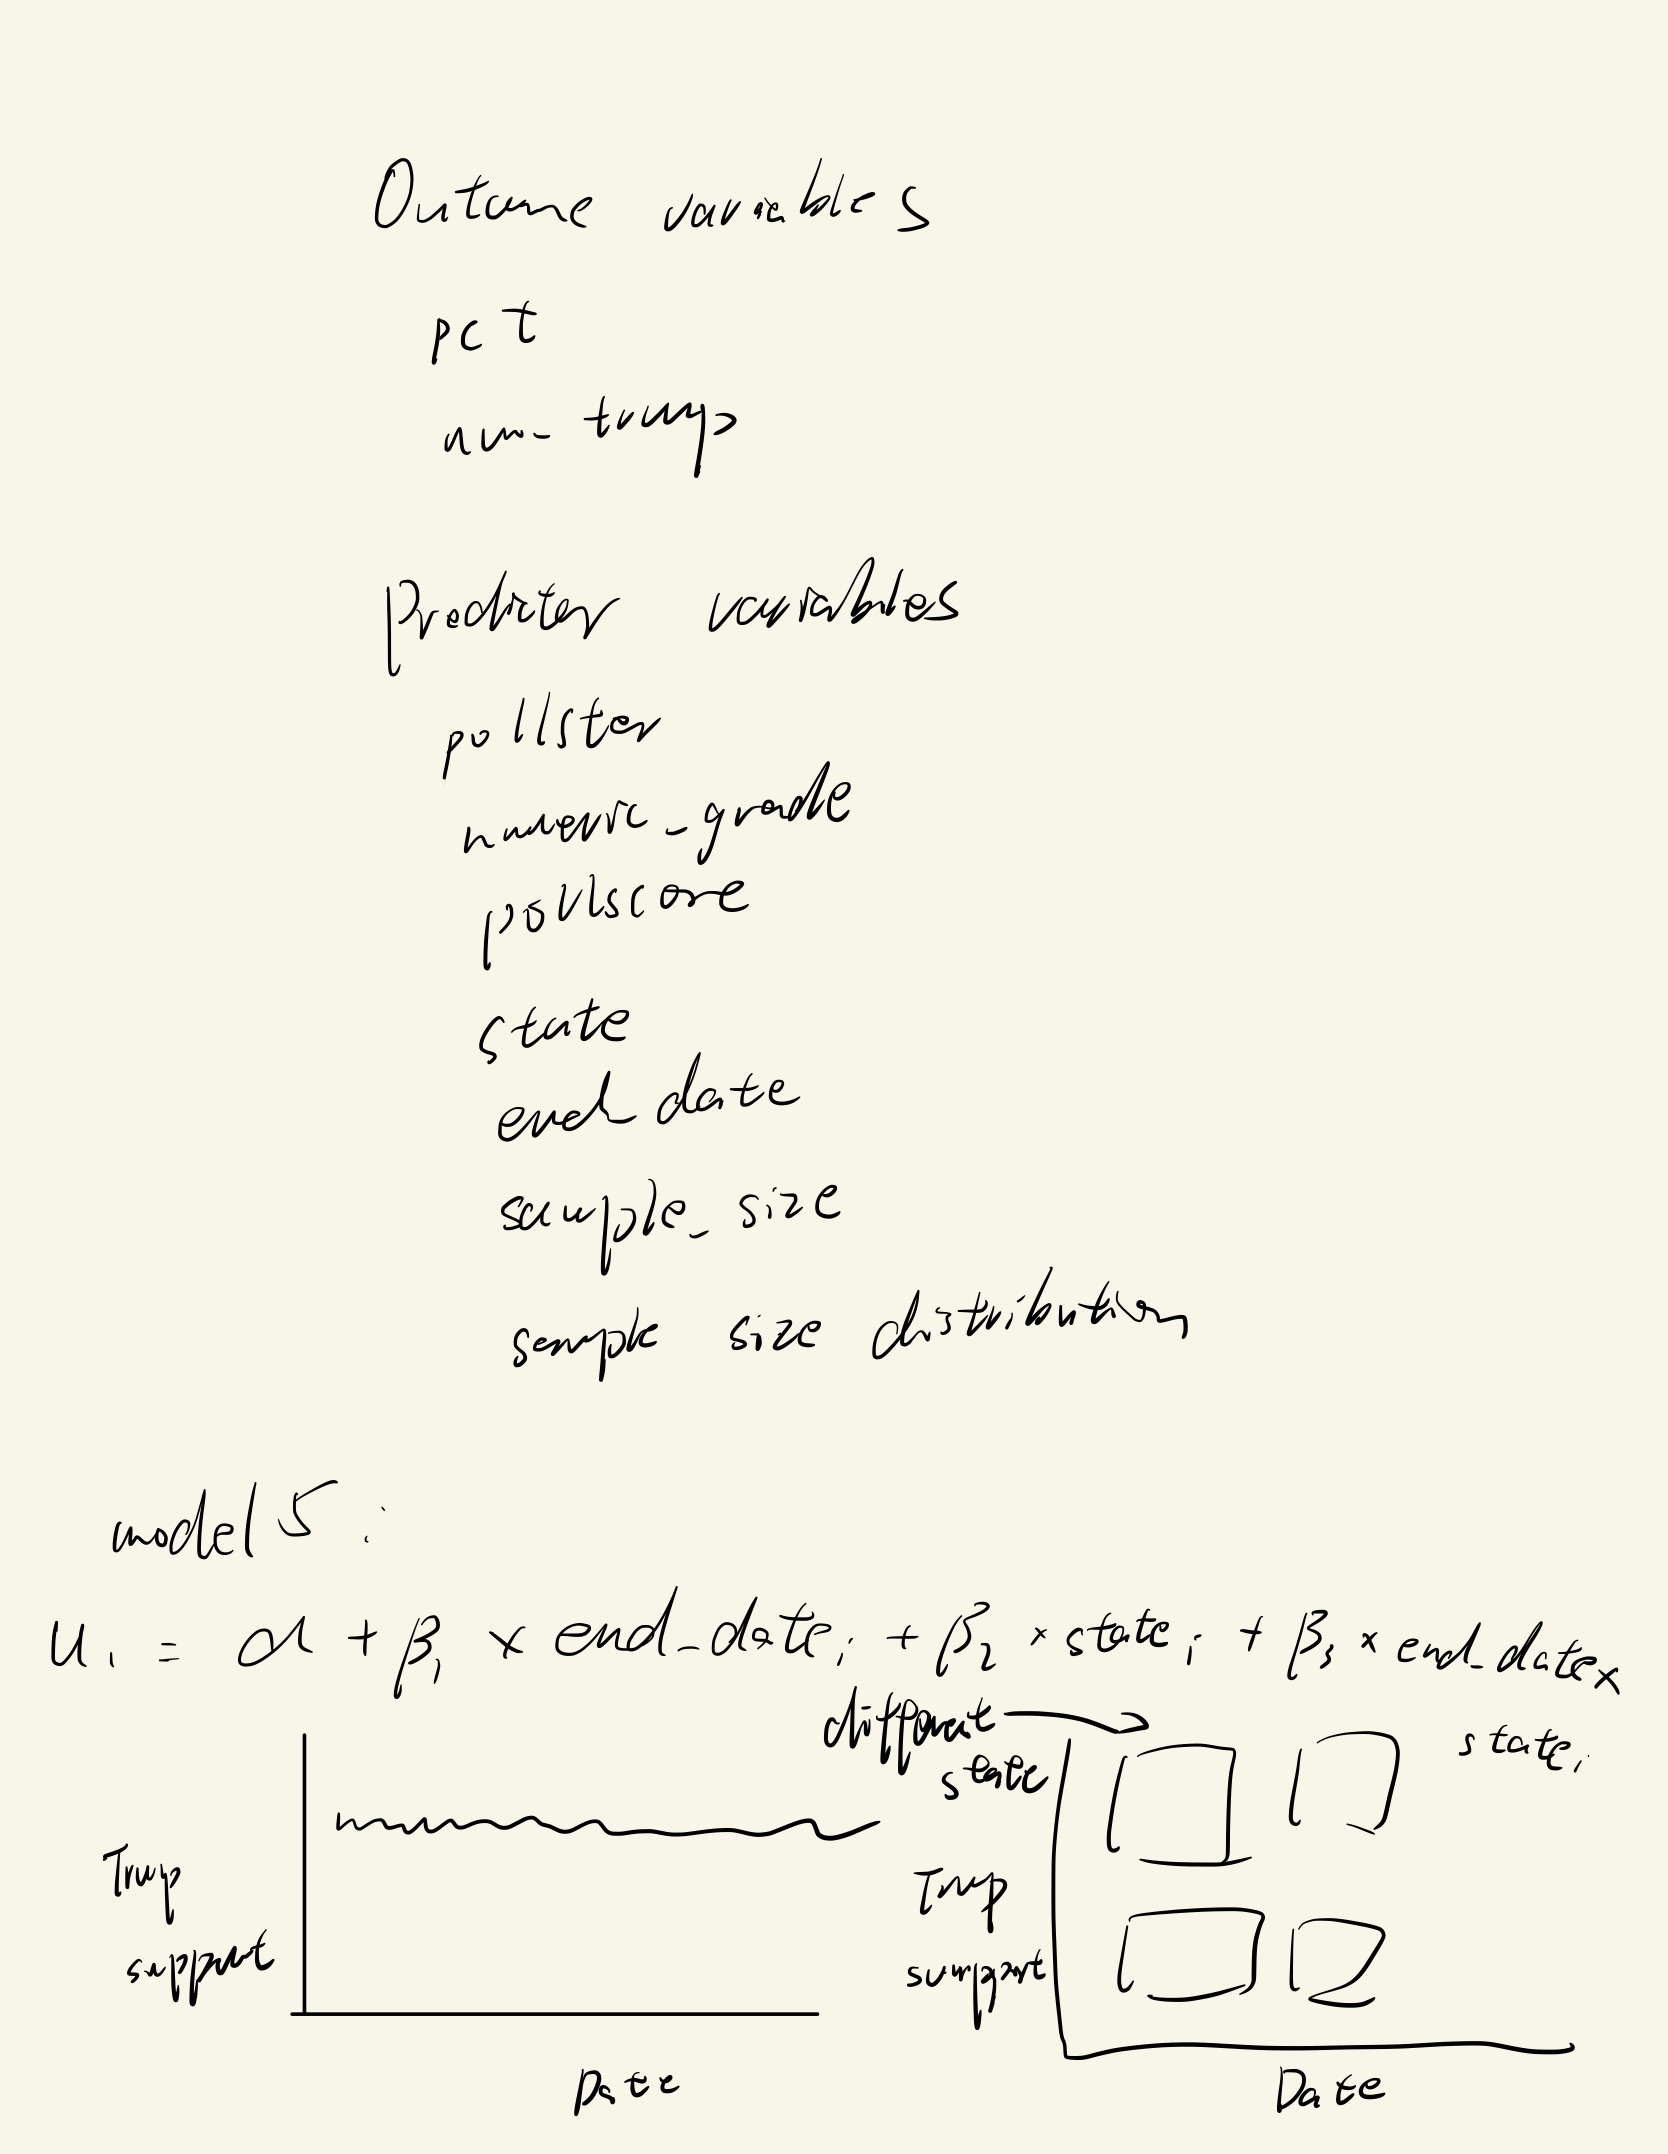 Outcome variables
pct
num_trump
Predictor variables
pollster
numeric_grade
pollscore
state
end_date
sample_size
sample size distribution
model 5 :
u i = α + β1 × end_date i + β2 × state i + β3 × end_date ×
state i
different
state
Trump
support
Date
Trump
support
Date